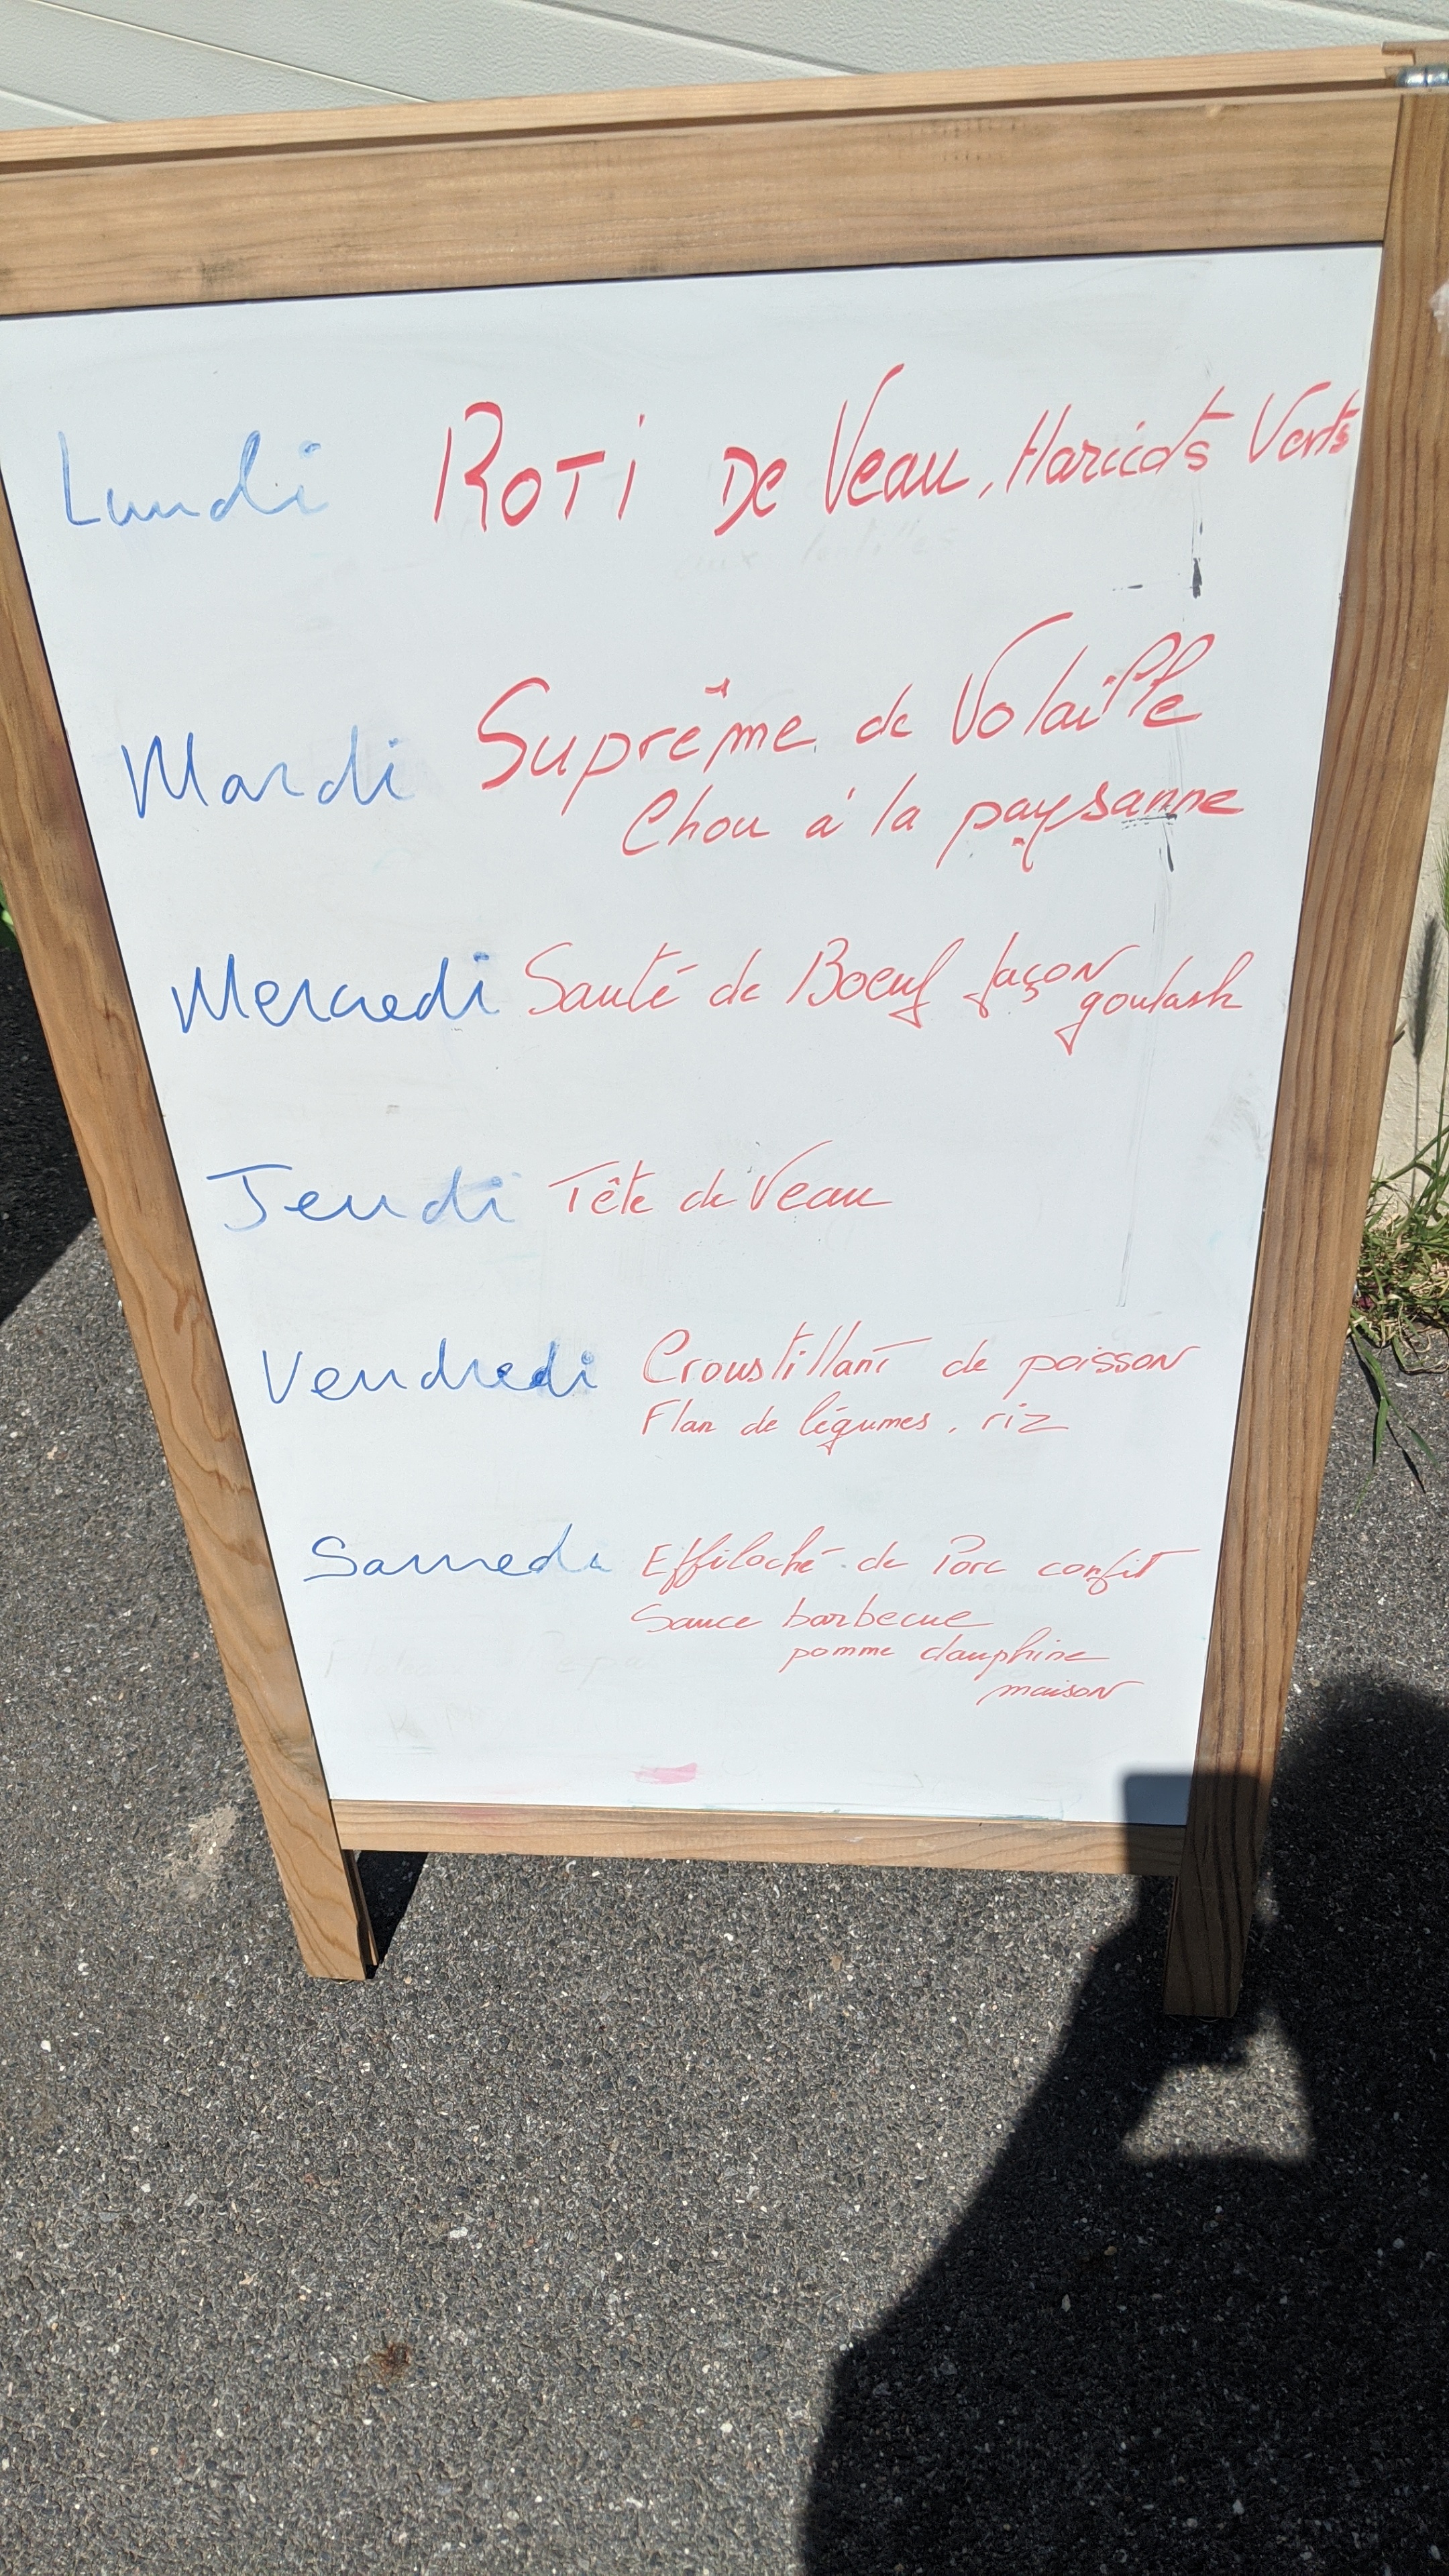 Lundi ROTi De Veau, Haricots Verts
Mardi Suprême de Volaille
Chou à la paysanne
Mercredi Sauté de Boeuf façon
goulash
Jeudi Tête de Veau
Vendredi Croustillant de poisson
Flan de légumes, riz
Samedi Effiloché de Porc confit
Sauce barbecue
pomme dauphine
maison